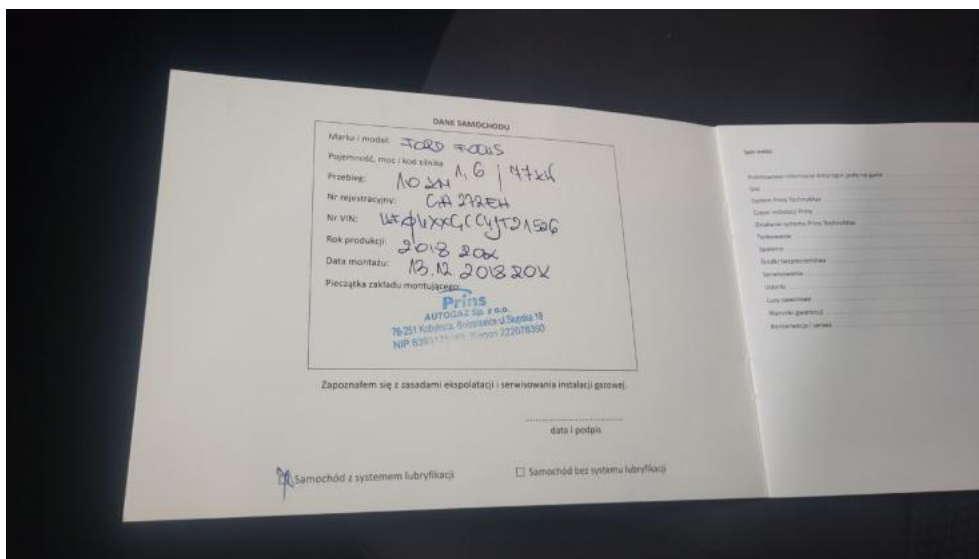 DANE SAMOCHODU
Marka i model: FORD FOCUS
Pojemność, moc i kod silnika 1,6 / 77kW
Przebieg: 10 KM
Nr rejestracyjny: GA 272EH
Nr VIN:
Rok produkcji: 2018 ROK
Data montażu: 13.12.2018 ROK
Pieczątka zakładu montującego:
Prins
AUTOGAZ Sp. z o.o.
76-251 Kobylnica, ul. Słupska 19
NIP Regon 222078350
Zapoznałem się z zasadami ekspolatacji i serwisowania instalacji gazowej.
data i podpis
Samochód z systemem lubryfikacji
Samochód bez systemu lubryfikacji
Spis treści
Podstawowe informacje dotyczące jazdy na gazie
System Prins TechnoMax
Części instalacji Prins
Działanie systemu Prins TechnoMax
Tankowanie
Spaliny
Środki bezpieczeństwa
Serwisowanie
Usterki
Luzy zaworowe
Warunki gwarancji
Konserwacja / serwis